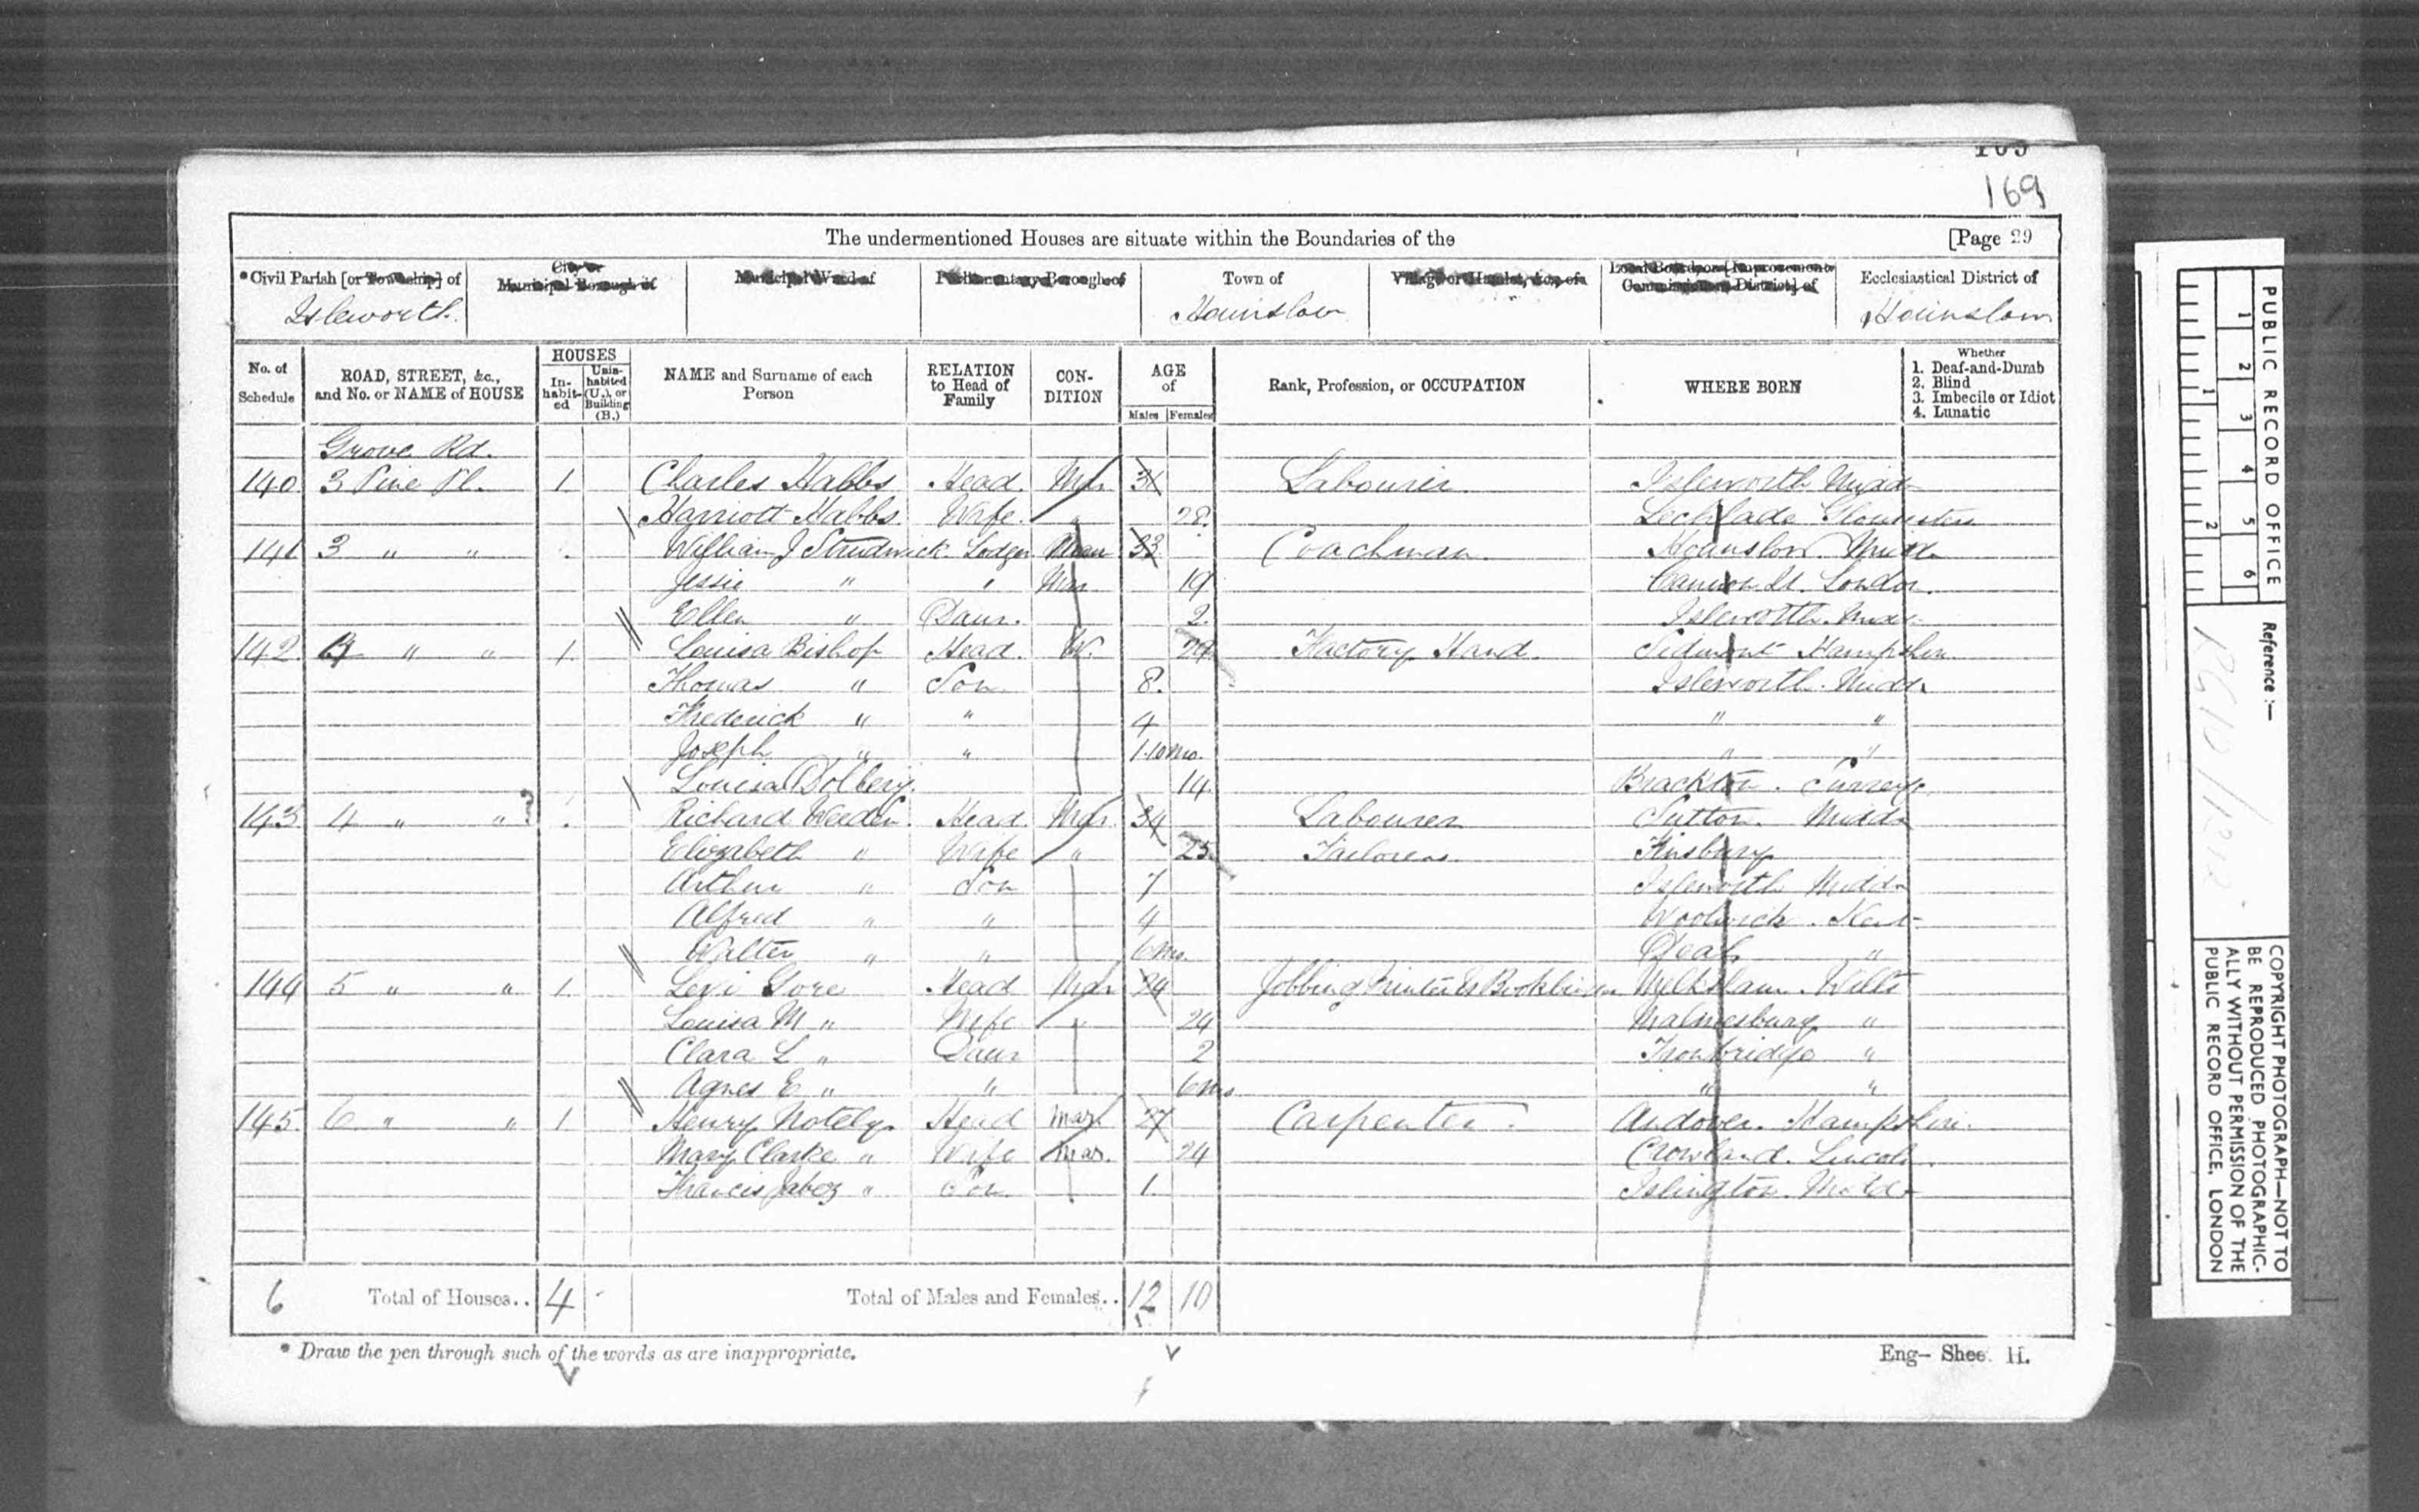 169
The undermentioned Houses are situate within the Boundaries of the [Page 29
*Civil Parish [or Township] of
City or Municipal Borough of
Municipal Ward of
Parliamentary Borough of
Town of
Village or Hamlet, &c., of
Local Board, or [Improvement Commissioners District] of
Ecclesiastical District of
Isleworth
Hounslow
Hounslow
No. of Schedule
ROAD, STREET, &c., and No. or NAME of HOUSE
HOUSES
In-habit-ed
Unin-habited (U.), or Building (B.)
NAME and Surname of each Person
RELATION to Head of Family
CON-DITION
AGE of
Males Females
Rank, Profession, or OCCUPATION
WHERE BORN
Whether
1. Deaf-and-Dumb
2. Blind
3. Imbecile or Idiot
4. Lunatic
Grove Rd.
140 3 Pine Pl. 1 Charles Habbs Head Mar 31 Labourer Isleworth Midd
Harriott Habbs Wife " 28 Lechlade Gloucester
141 3 " " William J Strudwick Lodger Mar 33 Coachman Hounslow Midd
Jessie " " Mar 19 Cannon St. London
Ellen " Daur. 2 Isleworth Midd
142 " " 1 Louisa Bishop Head W. 29 Factory Hand Hampshire
Thomas " Son 8 Isleworth Midd
Frederick " " 4 " "
Joseph " " 1.10mo. " "
Louisa Dolbery 14 Surrey
143 4 " " Richard Weeden Head Mar 34 Labourer Sutton Midd
Elizabeth " Wife " 25 Tailoress Finsbury
Arthur " Son 7 Isleworth Midd
Alfred " " 4 Woolwich Kent
Walter " " 6mo. Deal "
144 5 " " 1 Levi Gore Head Mar 24 Jobbing Printer & Bookbinder Melksham Wilts
Louisa M " Wife " 24 Malmesbury "
Clara L " Daur 2 Trowbridge "
Agnes E " " 6mo " "
145 6 " " 1 Henry Notely Head Mar 27 Carpenter Andover Hampshire
Mary Clarke " Wife Mar. 24 Crowland Lincoln
Francis Jabez " Son 1 Islington Midd
6 Total of Houses.. 4 Total of Males and Females.. 12 10
* Draw the pen through such of the words as are inappropriate.
Eng- Sheet H.
PUBLIC RECORD OFFICE
1 2 3 4 5 6
1 2
Reference :-
COPYRIGHT PHOTOGRAPH—NOT TO
BE REPRODUCED PHOTOGRAPHIC-
ALLY WITHOUT PERMISSION OF THE
PUBLIC RECORD OFFICE, LONDON